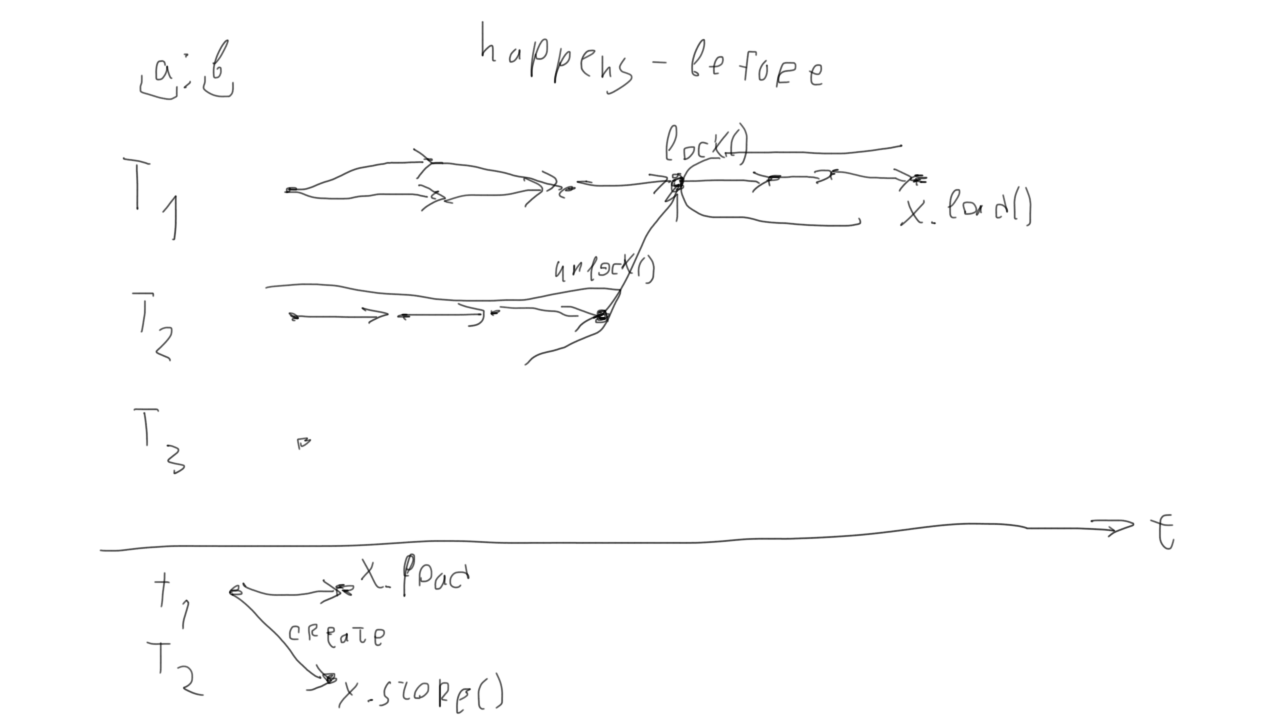 a; b
happens-before
lock()
T1
x.load()
unlock()
T2
T3
t
T1
x.load
create
T2
x.store()